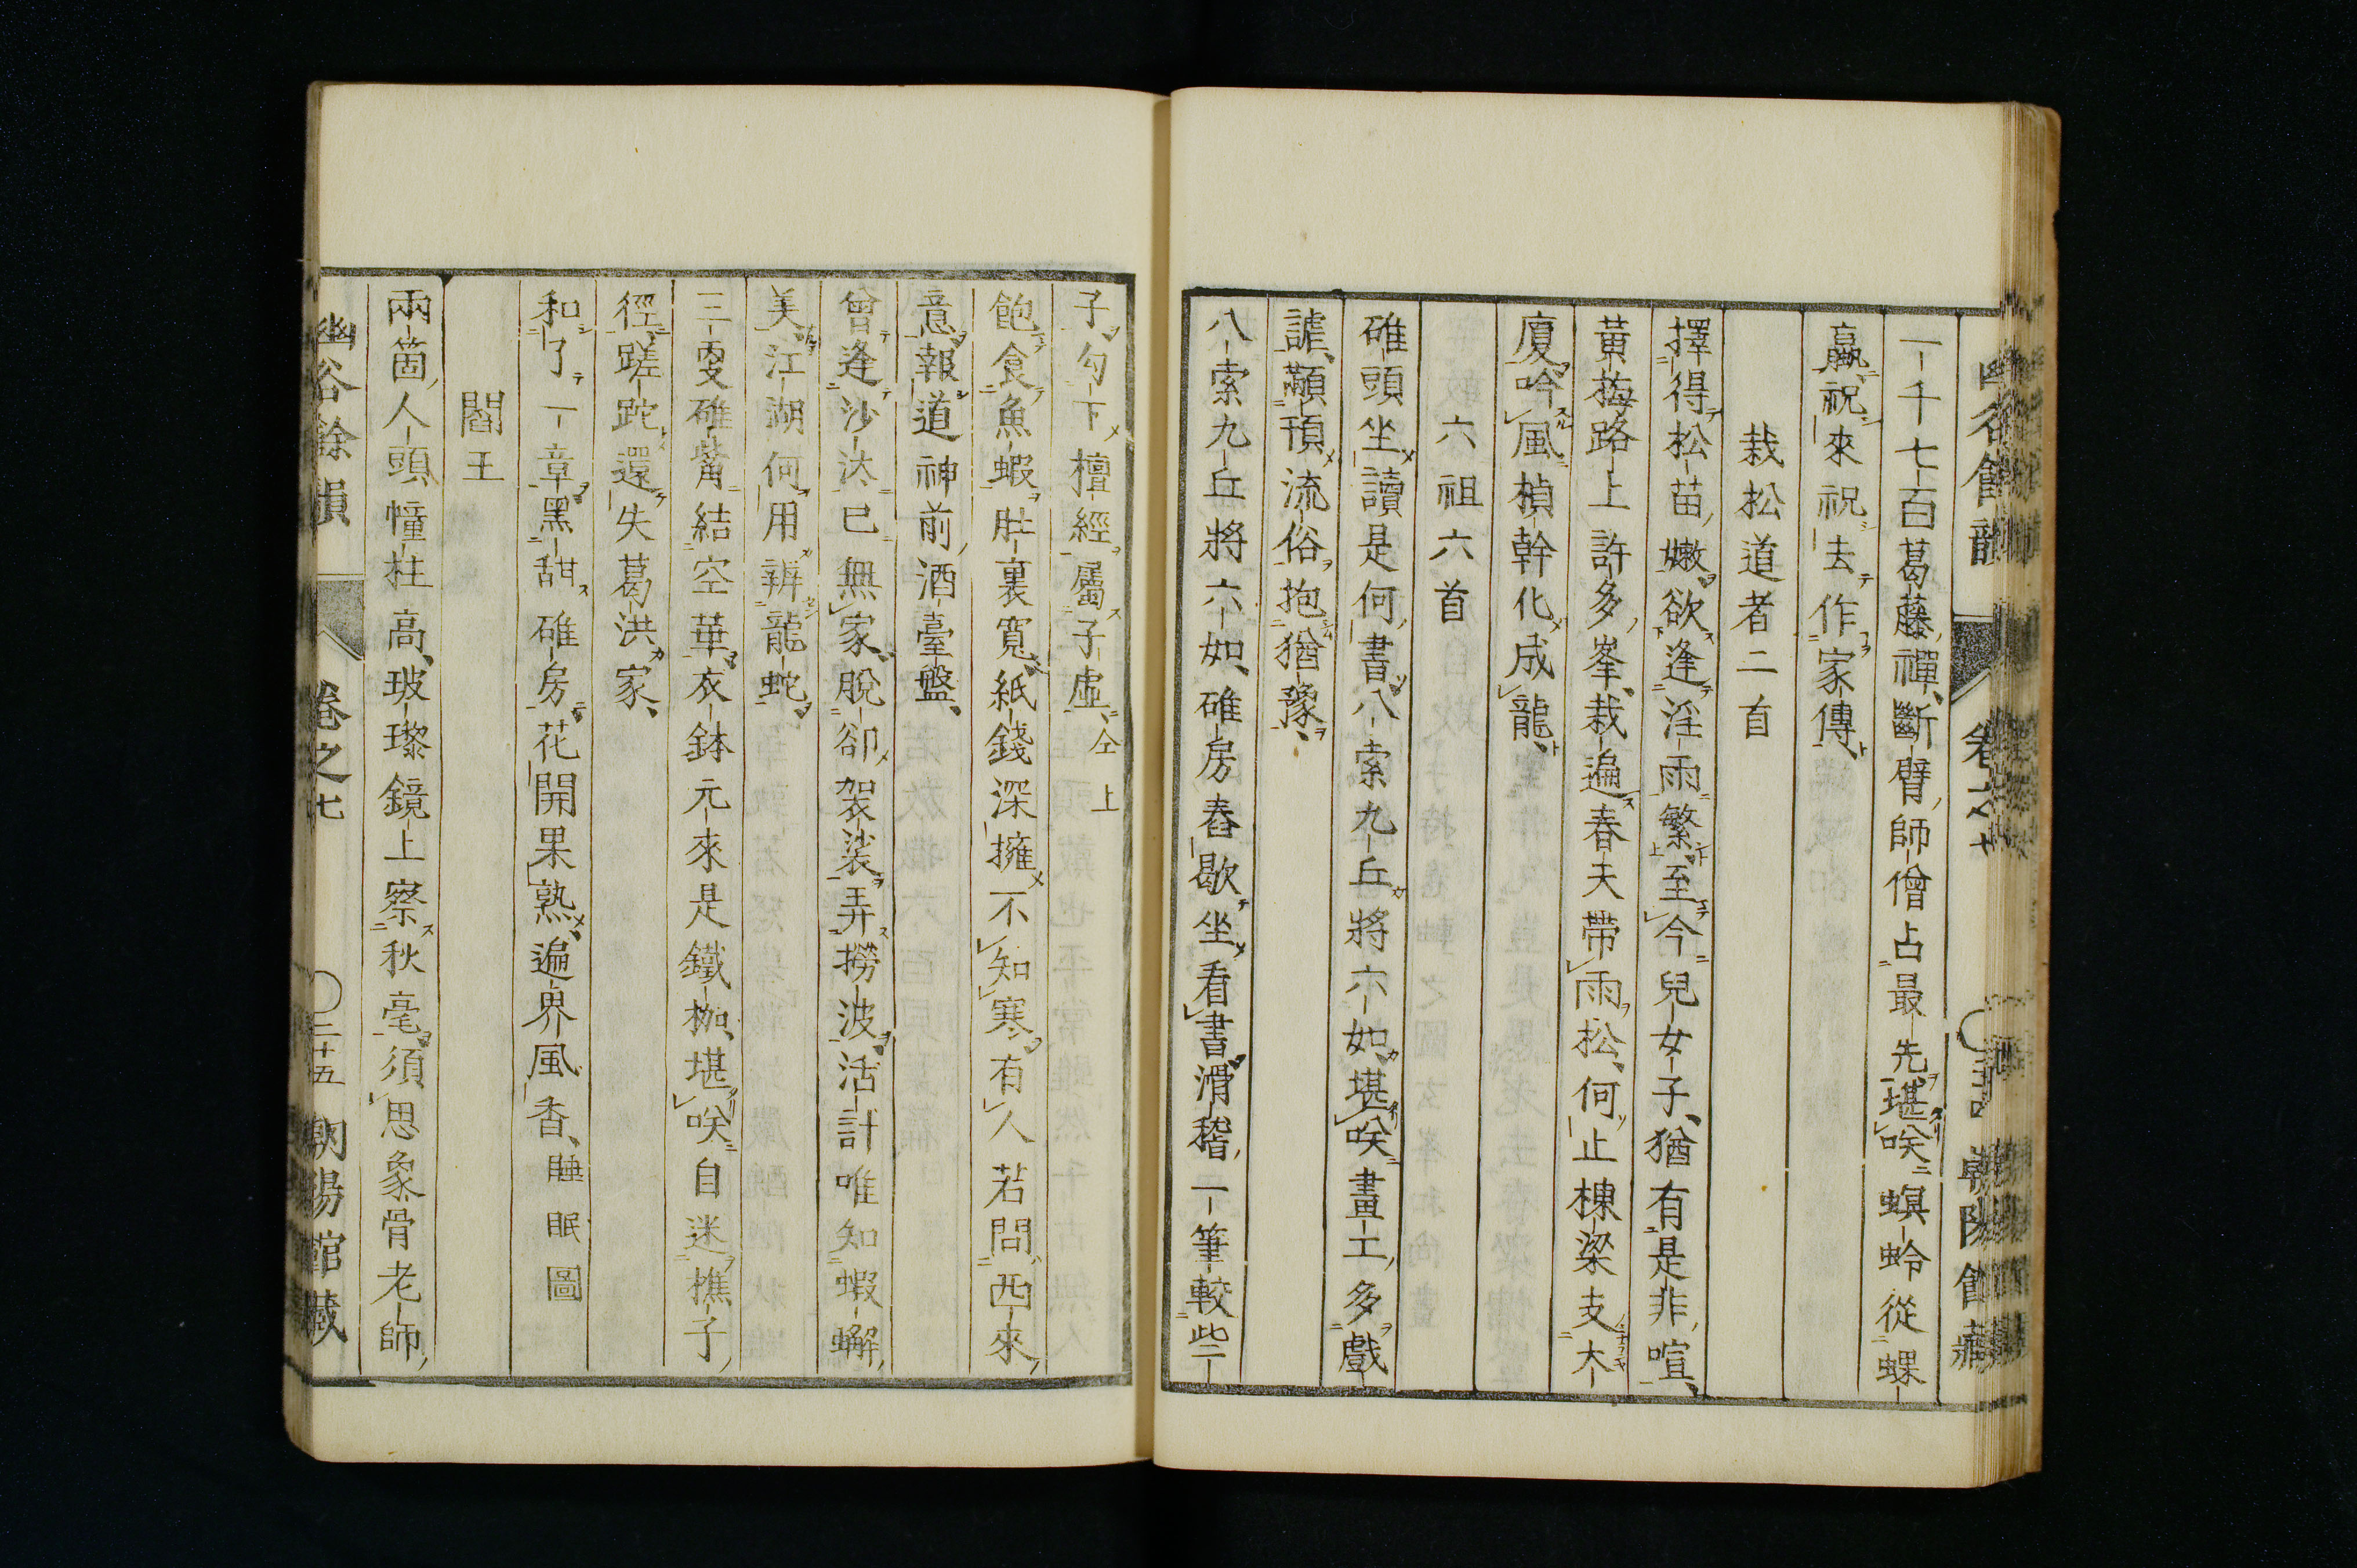 一千七百葛藤禪斷臂師僧占最先堪咲螟蛉從螺
蠃祝來祝去作家傳
栽松道者二首
擇得松苗嫩欲逢淫雨繁至今兒女子猶有是非喧
黃梅路上許多峯栽遍春天帶雨松何止棟梁支大
廈吟風楨幹化成龍
六祖六首
碓頭坐讀是何書八索九丘將六如堪咲畫工多戲
謔顢頇流俗抱猶豫
八索九丘將六如碓房舂歇坐看書滑稽一筆較些
子勾下檀經屬子虛 仝上
飽食魚蝦肚裏寬紙錢深擁不知寒有人若問西來
意報道神前酒臺盤
曾逢沙汰已無家脫卻袈裟弄撈波活計唯知蝦蠏
美江湖何用辨龍蛇
三更碓觜結空華衣鉢元來是鐵枷堪咲自迷樵子
徑蹉跎還失葛洪家
和了一章黑甜碓房花開果熟遍界風香 睡眠圖
閻王
兩箇人頭幢柱高玻瓈鏡上察秋毫須思象骨老師
幽谷餘韻 卷之七 〇二十五 朝陽館藏